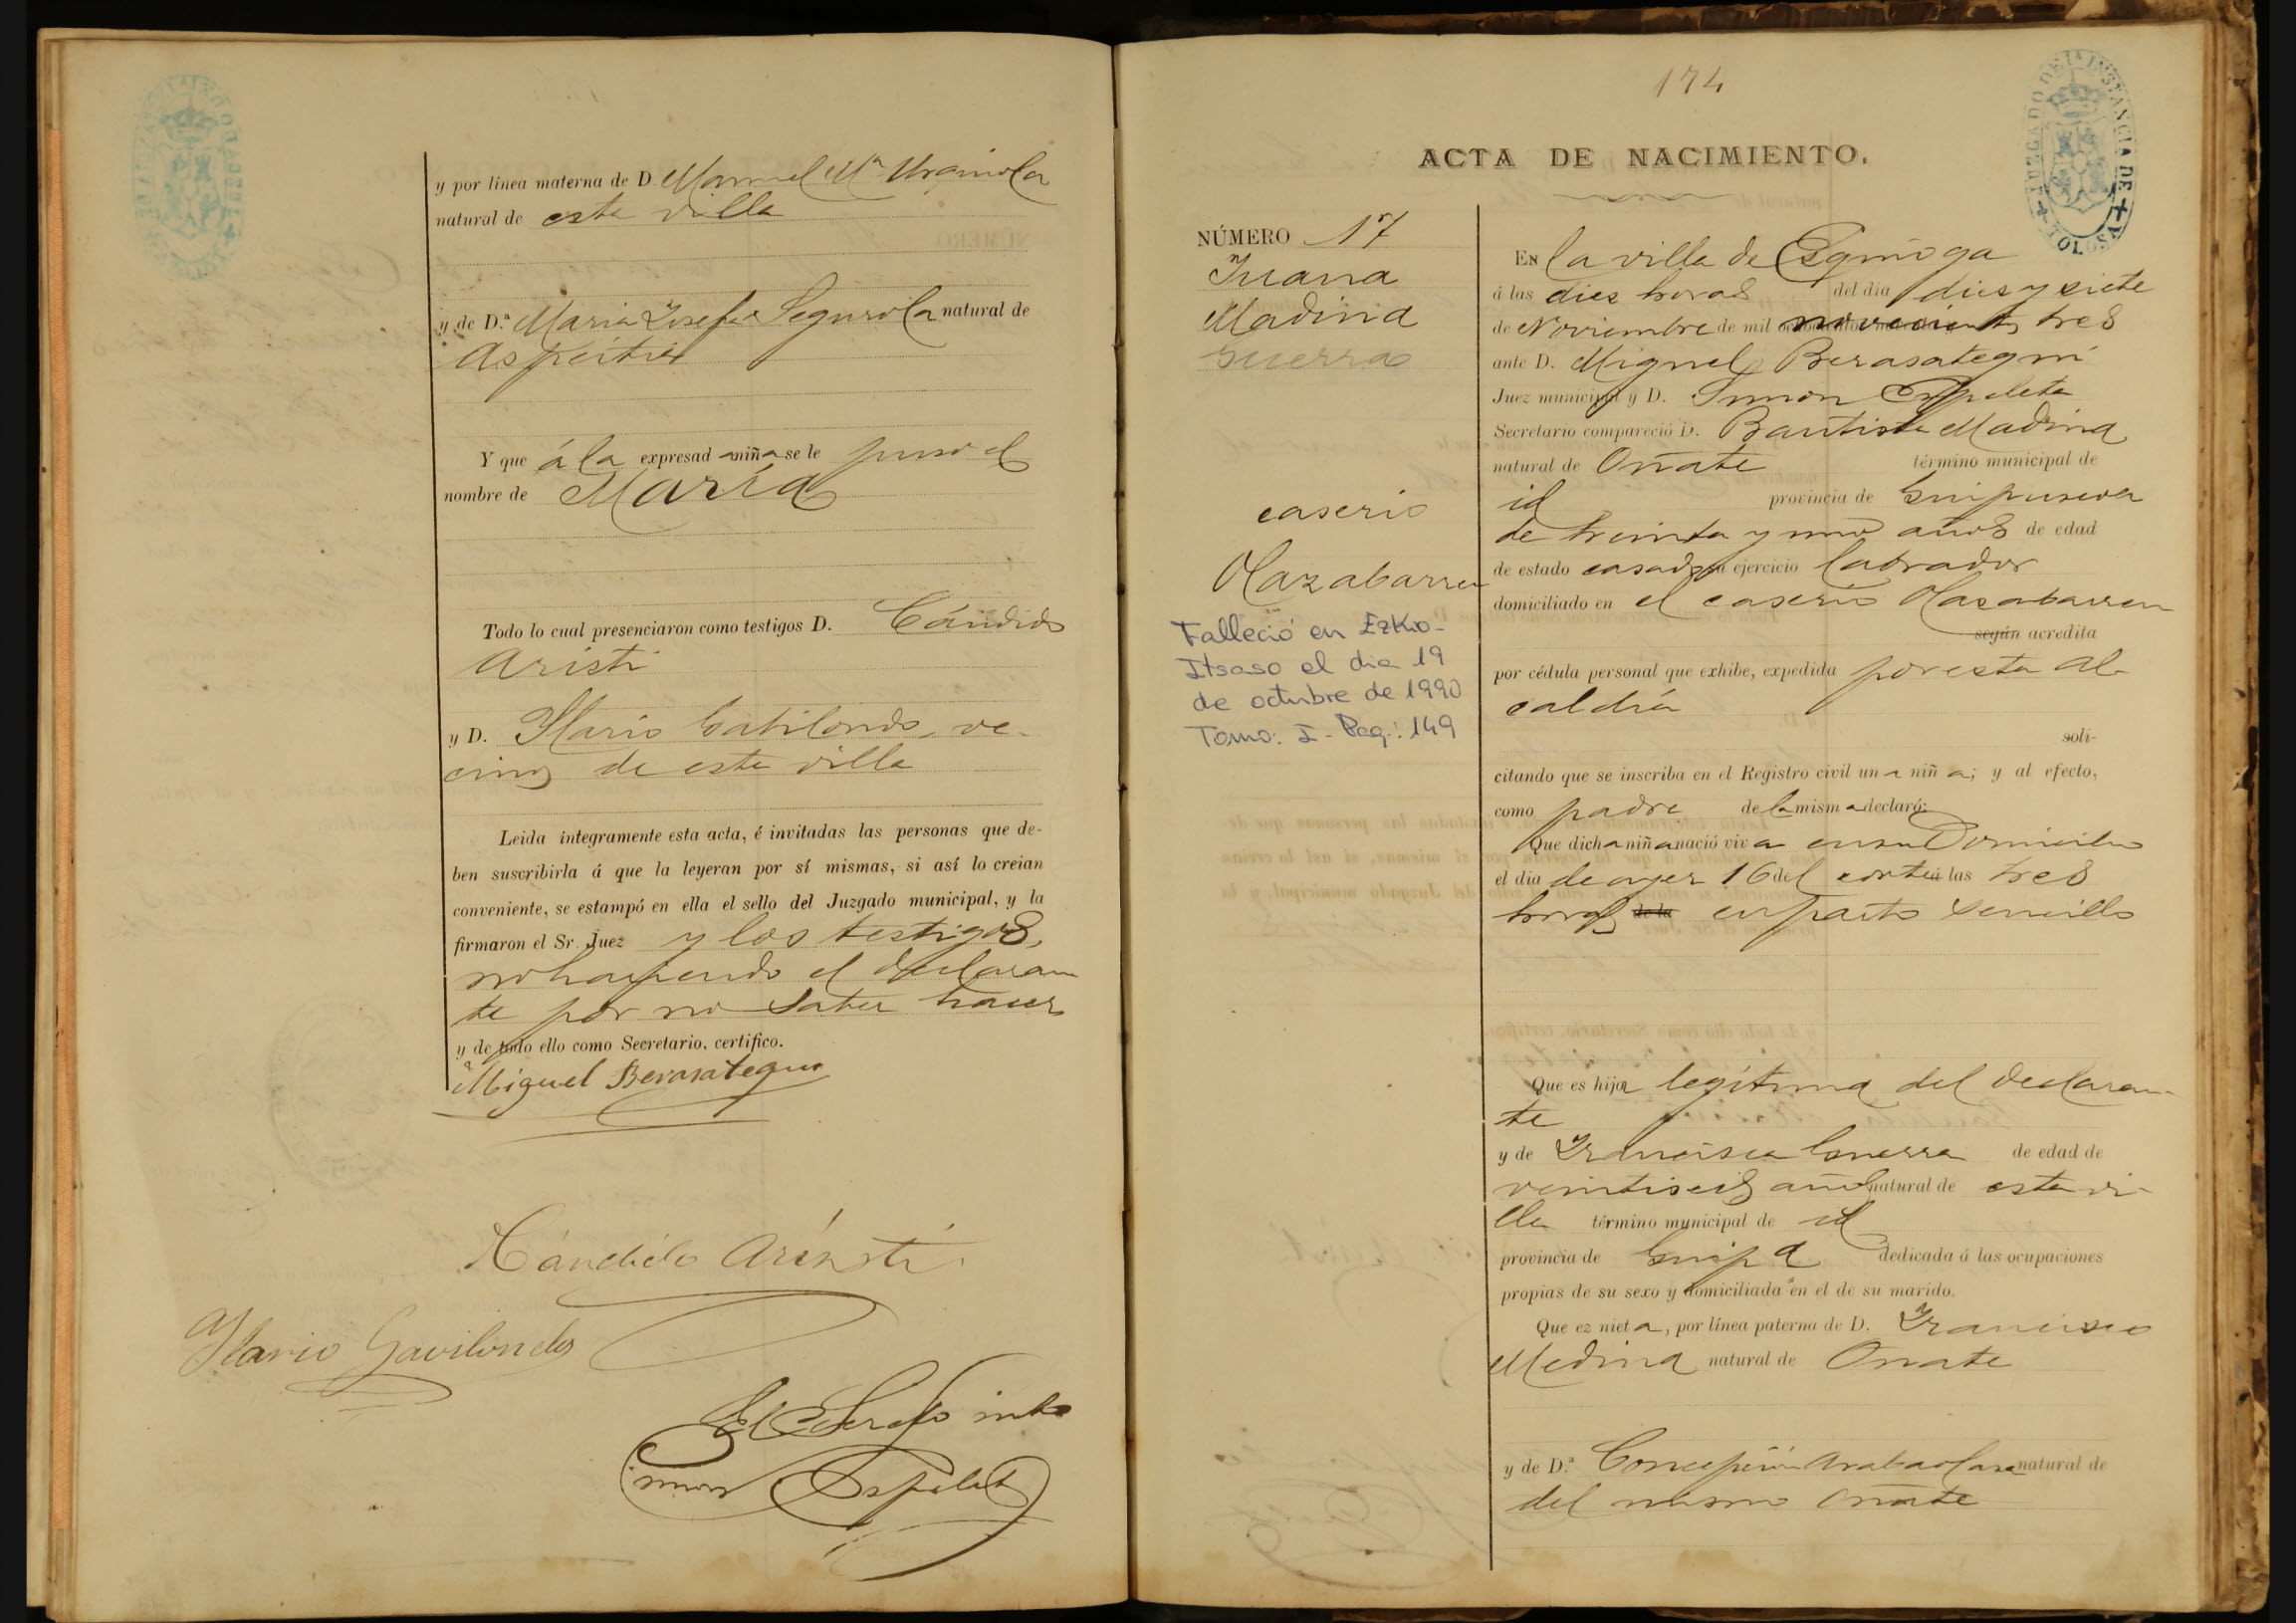 y por línea materna de D. Manuel Mª Urquiola
natural de esta villa
y de D.ª Maria Josefa Segurola natural de
Aspeitia
Y que á la expresad a niña se le puso el
nombre de María
Todo lo cual presenciaron como testigos D. Cándido
Aristi
y D. Ilario Gabilondo, ve-
cinos de esta villa
Leida íntegramente esta acta, é invitadas las personas que de-
ben suscribirla á que la leyeran por sí mismas, si así lo creian
conveniente, se estampó en ella el sello del Juzgado municipal, y la
firmaron el Sr. Juez y los testigos,
no haciendo el declaran
te por no saber hacer
y de todo ello como Secretario, certifico.
Miguel Berasategui
Cándido Aristi
Ilario Gavilondo
El Secretº intº
Simon Espeleta
174
JUZGADO DE 1ª INSTANCIA DE TOLOSA
ACTA DE NACIMIENTO.
NÚMERO 17
Juana
Madina
Guerra
caserio
Olazabarren
Falleció en Ezkio-
Itsaso el dia 19
de octubre de 1990
Tomo: I - Pag.: 149
EN la villa de Esquioga
á las dies horas del dia dies y siete
de Noviembre de mil novecientos tres
ante D. Miguel Berasategui
Juez municipal y D. Simon Espeleta
Secretario compareció D. Bautista Madina
natural de Oñate término municipal de
id provincia de Guipuscoa
de treinta y uno años de edad
de estado casado su ejercicio labrador
domiciliado en el caserio Olasabarren
según acredita
por cédula personal que exhibe, expedida por esta al-
caldía
soli-
citando que se inscriba en el Registro civil un a niñ a; y al efecto,
como padre de la mism a declaró:
Que dicha niña nació viv a en su Domicilio
el dia de ayer 16 del corte á las tres
horas de la en parto sencillo
Que es hija legítima del declaran-
te
y de Francisca Guerra de edad de
veintiseis años natural de esta vi-
lla término municipal de id
provincia de Guipª dedicada á las ocupaciones
propias de su sexo y domiciliada en el de su marido.
Que ez niet a, por línea paterna de D. Francisco
Medina natural de Oñate
y de D.ª Concepción Arabaolasa natural de
del mismo Oñate